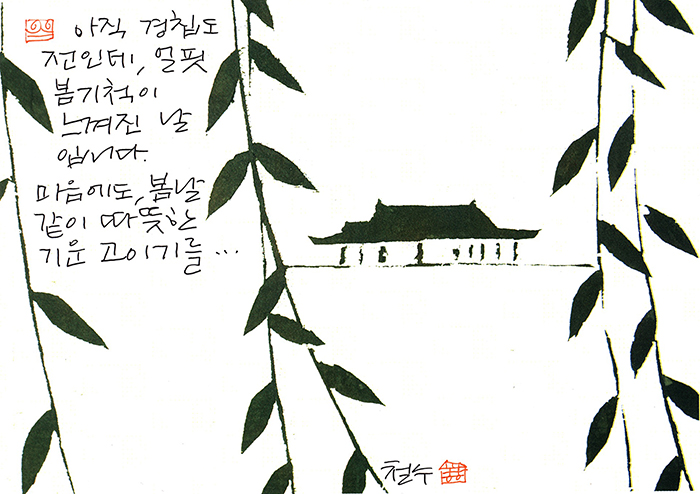 아직 경칩도
전인데, 얼핏
봄기척이
느껴진 날
입니다.
마음에도, 봄날
같이 따뜻한
기운 고이기를...
철수